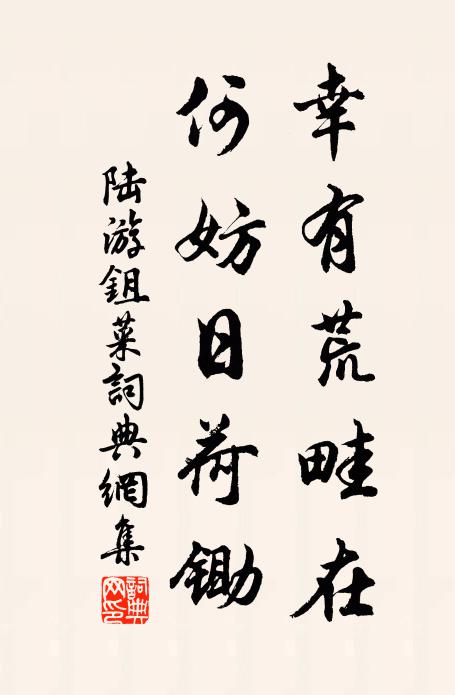 幸有荒畦在
何妨日荷鋤
陆游鉏菜詞典網集
詞典网印